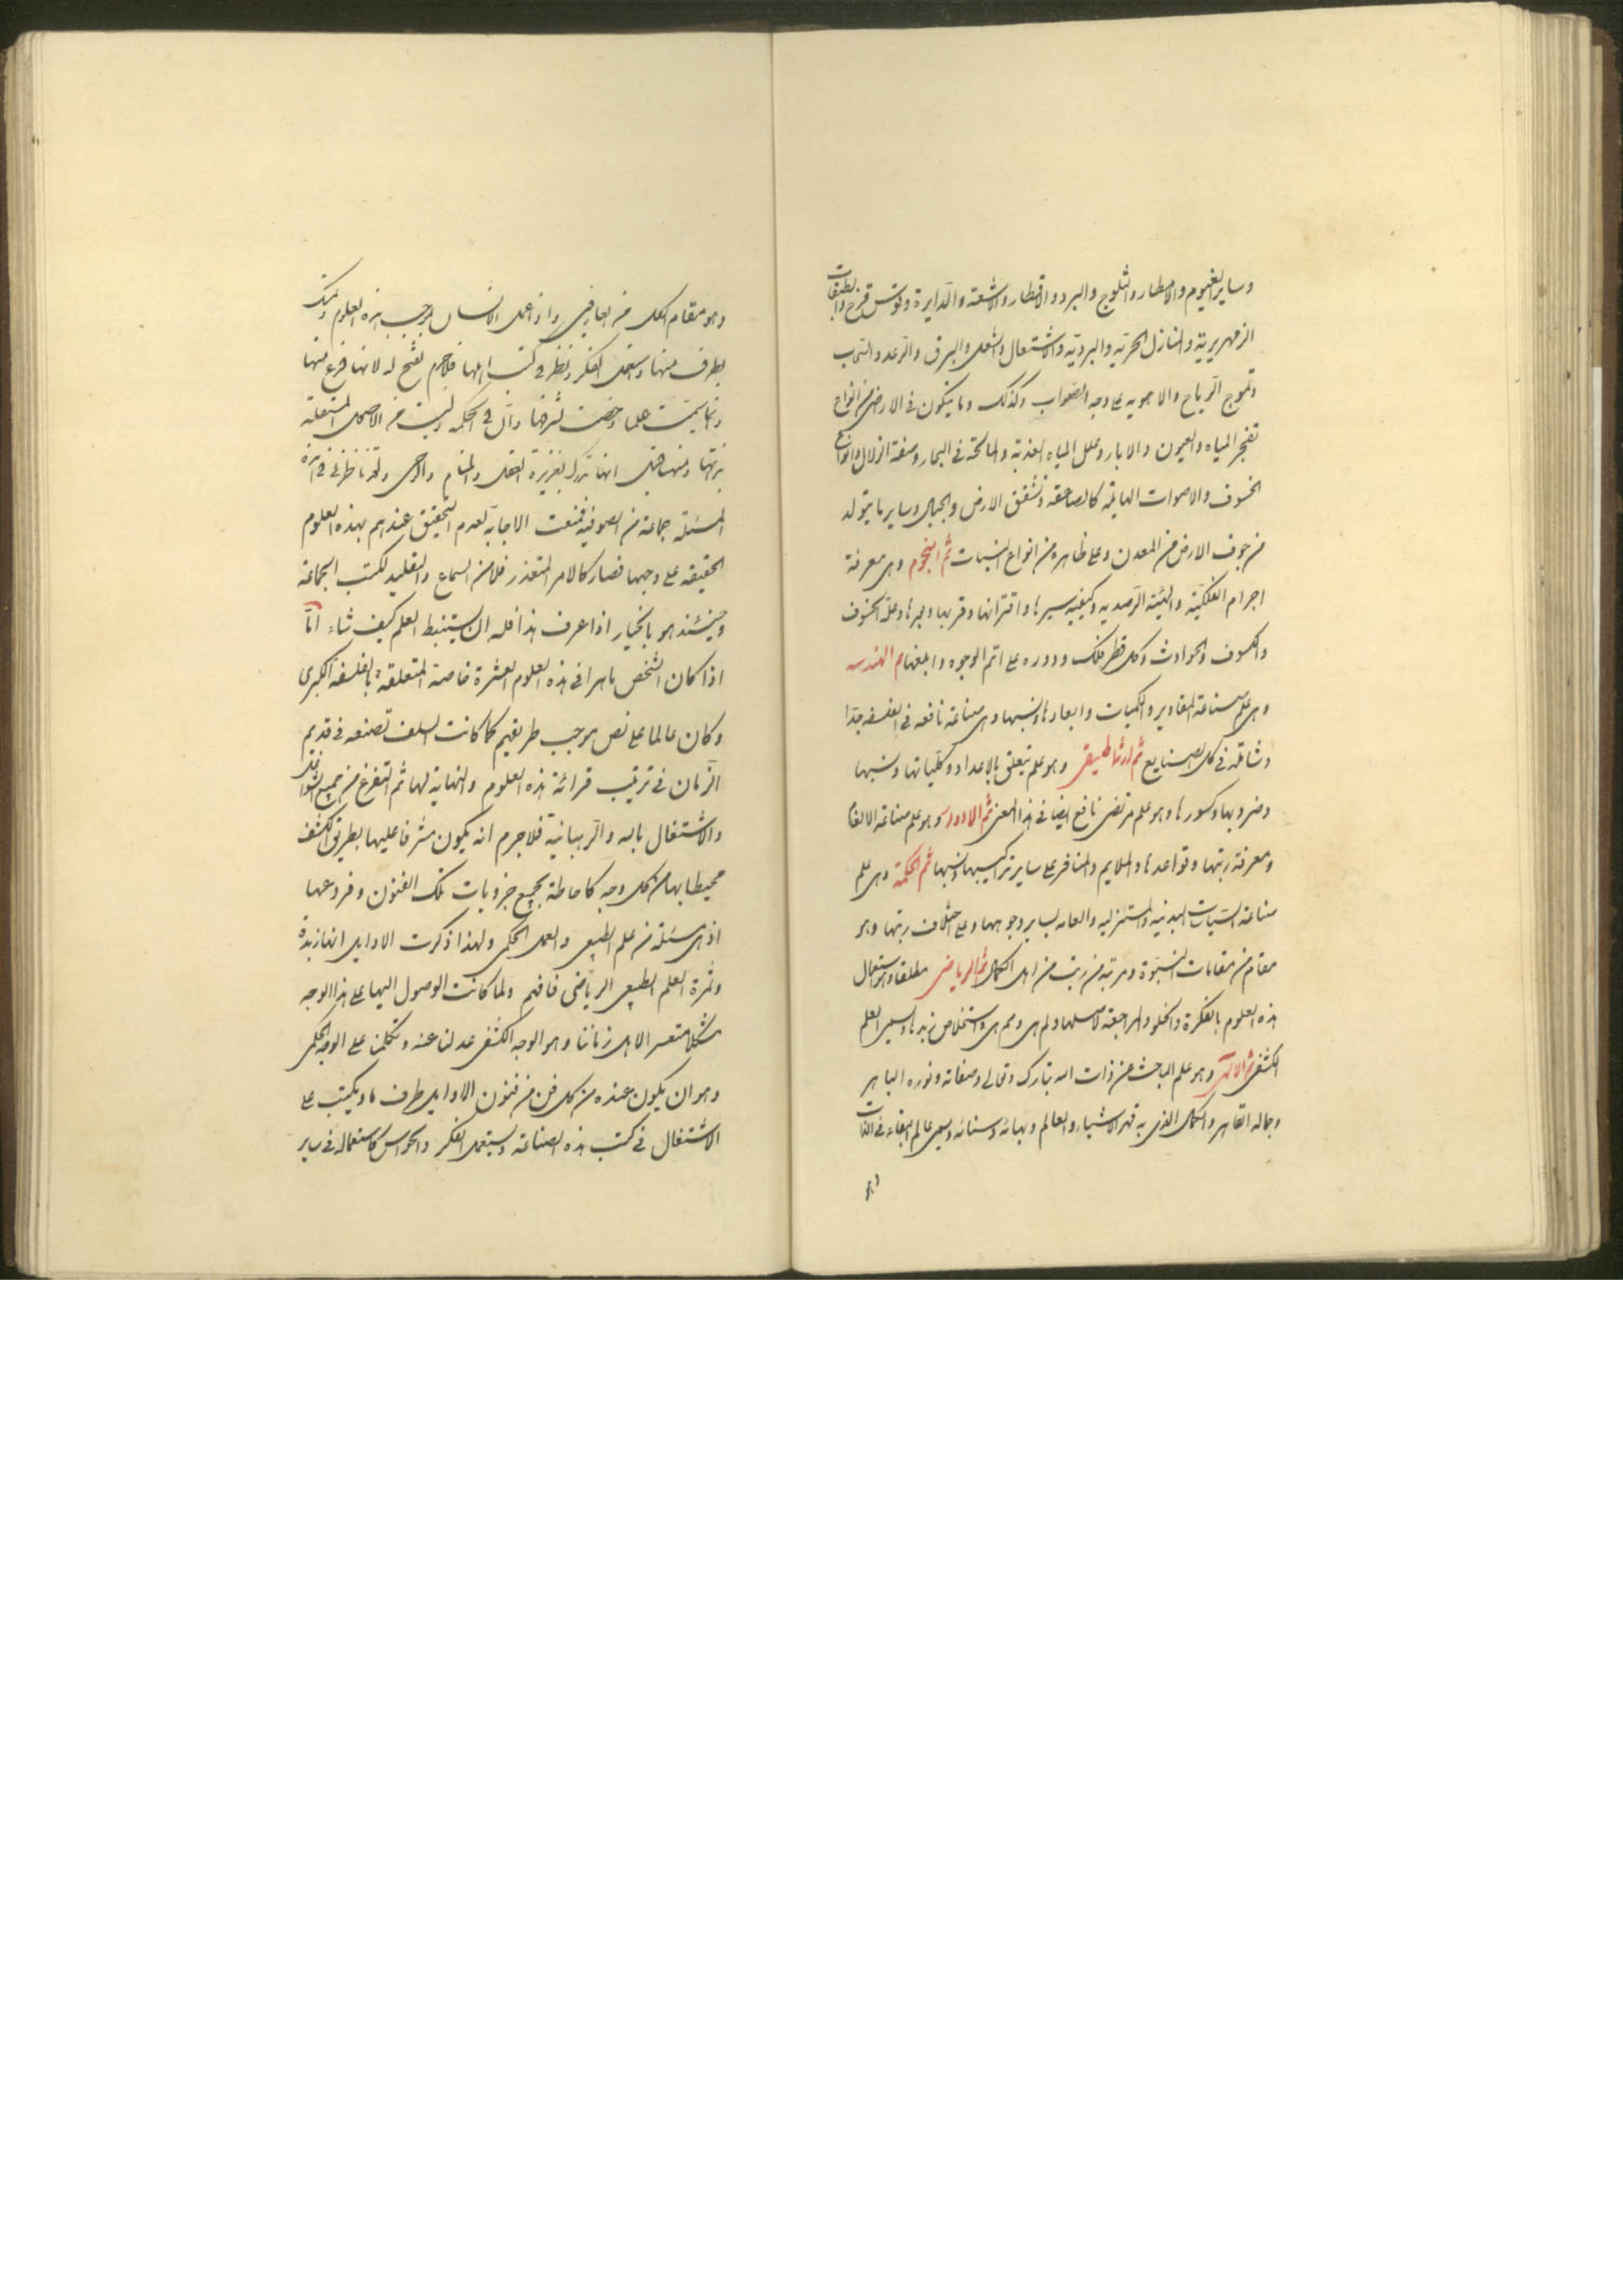 وساير الغيوم والامطار والثلوج والبرد والاقطار والاشعة والدايرة وقوس قزح والطبقات
الزمهريرية والمنازل الحرية والبردية والاشتعال والشعل والبرق والرعد والسحاب
وتموج الرياح والاهوية على وجه الصواب وكذلك وما يتكون فى الارض من انواع
تفجر المياه والعيون والابار وعلل المياه العذبة والمالحة فى البحار وصفة الزلازل وانواع
الخسوف والاصوات الهايلة كالصاعقة وتشقق الارض والجبال وساير ما يتولد
من جوف الارض من المعدن وعلى ظاهره من انواع النبات ثم النجوم وهى معرفة
اجرام الفلكية والهيئة الرصدية وكيفية سيرها واقترانها وقربها وبعدها وعلة الخسوف
والكسوف والحوادث وكل قطر فلك ودوره على اتم الوجوه وابلغها ثم الهندسه
وهى علم صناعة المقادير والكميات وابعادها ونسبها وهى صناعة نافعه فى الفلسفه جدا
وشاملة فى كل الصنايع ثم ارثماطيقى وهو علم يتعلق بالاعداد وكلياتها ونسبها
وضروبها وكسورها وهو علم مرتضى نافع ايضا فى هذا المعنى ثم الادوار وهو علم صناعة الالقا
ومعرفة رتبتها وقواعدها والملايم والمنافر على ساير تراكيبها ونسبها ثم الحكمة وهى علم
صناعة السياسات البدنيه والمنزليه والعامه بساير وجوهها وعلى اختلاف رتبها وهو
مقام من مقامات النبوة ومرتبة من رتبة من اهل الكمال ثم الرياضى مطلقا وهو استعمال
هذه العلوم بالفكرة والخلو والمراجعة لاصلها ولم هى ومم هى واستخلاص زبدها ويسمى العلم
الكشفى ثم الالهى وهو علم الباحث عن ذات الله تبارك وتعالى وصفاته ونوره الباهر
وجماله القاهر والكمال الذى به قهر الاشياء والعالم وبهائه وسنائه ويسمى عالم البقاء فى الذات
وهو
وهو مقام الكل من العارفين واذ اعمل الانسان بموجب هذه العلوم وتمسك
بطرف منها واستعمل الفكر ونظر فى كتب اهلها فلاجرم يفتح له لانها فرع منها
وانما سميت علما وخصت لشرفها وآل فى الحكمة وليست من الاعمال المستعملة
بذاتها ومنها قيل انها تدرك بغريزة العقل والمنام والوحى ولقد ناظرنى فى هذه
المسئلة جماعة من الصوفية فمنعت الاجابة لعدم التحقيق عندهم بهذه العلوم
الحقيقه على وجهها فصار كالامر المتعذر فلا من السماع والتقليد لكتب الجماعة
وحينئذ هو بالخيار اذا عرف هذا فله ان يستنبط العلم كيف شاء اما
اذا كان الشخص ماهرا فى هذه العلوم العشرة خاصة المتعلقة بالفلسفة الكبرى
وكان عالما على نص موجب طريقهم كما كانت السلف تصنعه فى قديم
الزمان فى ترتيب قرائة هذه العلوم والنهاية لها ثم التفرغ من جميع الشواغل
والاشتغال بالله والرهبانية فلاجرم انه يكون مشرفا عليها بطريق الكشف
محيطا بها من كل وجه كاحاطة بجميع جزويات تلك الفنون وفروعها
اذ هى مسئلة من علم الطبيعى والعمل الحكمى ولهذا ذكرت الاوايل انها زبدة
وثمرة العلم الطبيعى الرياضى فافهم ولما كانت الوصول اليها على هذا الوجه
مشكلا متعسر الاهل زماننا وهو الوجه الكشفى عدلنا عنه وتكلمنا على الوجه الحكمى
وهو ان يكون عنده من كل فن من فنون الاوايل طرف ما ويكتب على
الاشتغال فى كتب هذه الصناعة ويستعمل الفكر والحواس كاستعماله فى ساير